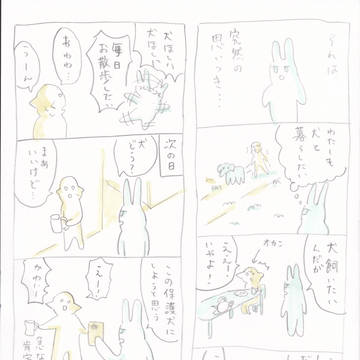 それは
突然の
思いつき…
わたしも
犬と
暮らしたい
犬飼いたい
んだが
ええー
いやよ!
犬ほしい
犬ほしい
毎日
お散歩した
おわわ…
うーん
次の日
犬
どう?
まあ
いいけど…
この保護犬に
しようと思う
えー!
かわいー
急な
肯定